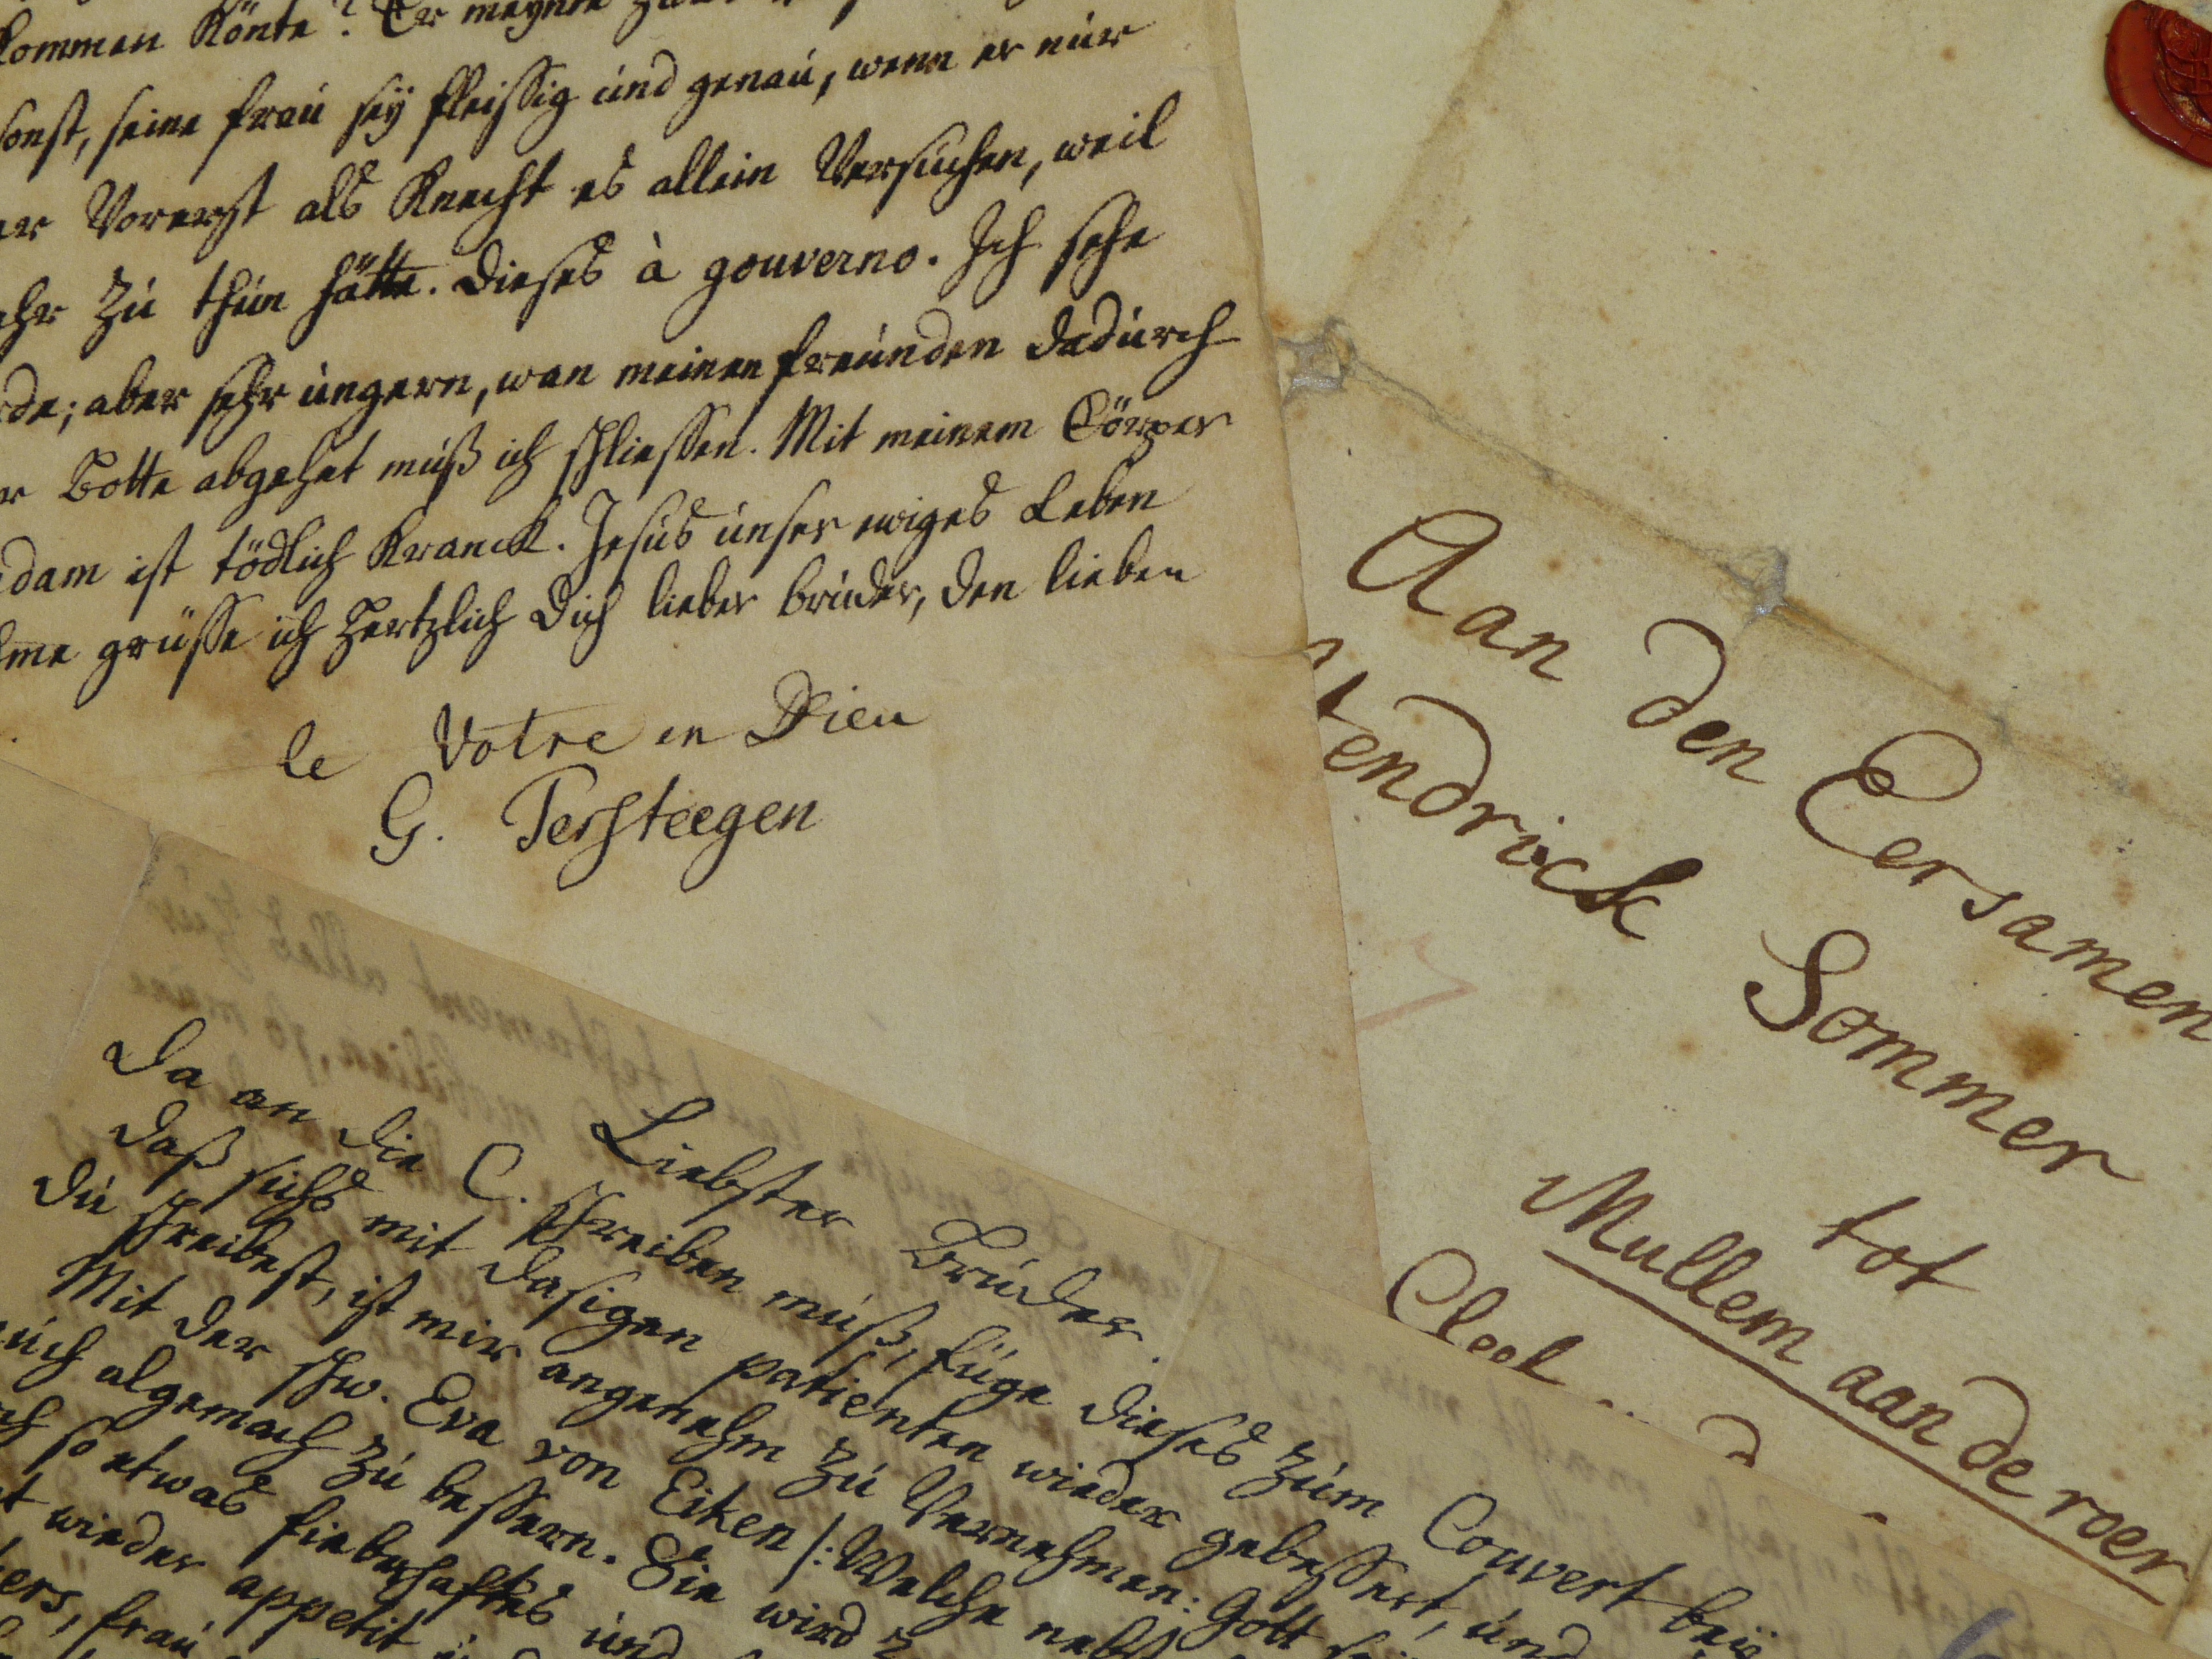 kommen könte? Er meynte
sonst, seine frau sey fleissig und genau, wenn er nur
er Vorerst als Knecht es allein Versuchen, weil
ehr zu thun hätte. Dieses à gouverno. Ich sehe
de; aber sehr ungern, wan meinen freunden dadurch
r Botte abgehet muß ich schliessen. Mit meinem Cörper
dam ist tödlich Kranck. Jesus unser ewiges Leben
me grüsse ich Hertzlich Dich lieber bruder, den lieben
le Votre en Dieu
G. Tersteegen
Aan den Eersamen
Hendrick Sommer
tot
Mullem aan de roer
Liebster Bruder.
Da an die C. schreiben muß, füge dieses zum Couvert bey
Daß sichs mit dasigen patienten wieder gebessert, und
Du schreibest, ist mir angenehm zu Vernehmen: Gott
Mit der schw. Eva von Eiken /: Welche nebst
uch algemach zu bessern. Sie wird
so etwas fieberhaftes und
t wieder appetit
ers, frau